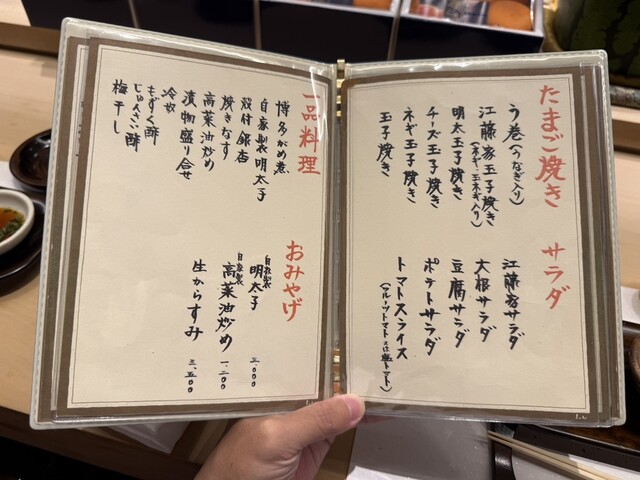 たまご焼き
う巻(うなぎ入り)
江藤家玉子焼き
(ネギ・玉ネギ入り)
明太玉子焼き
チーズ玉子焼き
ネギ玉子焼き
玉子焼き
サラダ
江藤家サラダ
大根サラダ
豆腐サラダ
ポテトサラダ
トマトスライス
(フルーツトマト又は塩トマト)
一品料理
博多がめ煮
自家製明太子
殻付銀杏
焼きなす
高菜油炒め
漬物盛り合せ
冷奴
もずく酢
じゅんさい酢
梅干し
おみやげ
自家製
明太子 三、000
自家製
高菜油炒め 一、二00
生からすみ 三、五00